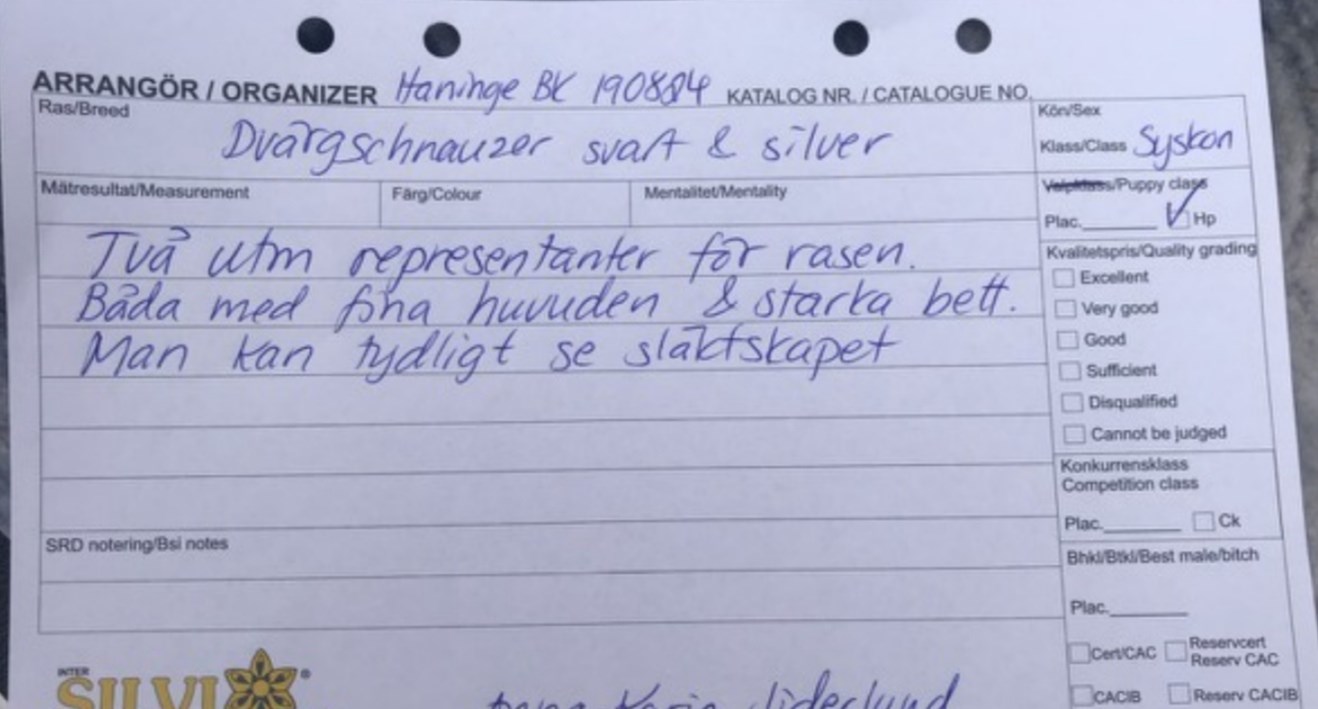 ARRANGÖR / ORGANIZER Haninge BK 190804 KATALOG NR. / CATALOGUE NO.
Ras/Breed
Dvärgschnauzer svart & silver
Kön/Sex
Klass/Class Syskon
Mätresultat/Measurement Färg/Colour Mentalitet/Mentality
Valpklass/Puppy class
Plac. Hp
Två utm representanter för rasen.
Båda med fina huvuden & starka bett.
Man kan tydligt se släktskapet
Kvalitetspris/Quality grading
Excellent
Very good
Good
Sufficient
Disqualified
Cannot be judged
Konkurrensklass
Competition class
Plac. Ck
SRD notering/Bsi notes
Bhkl/Btkl/Best male/bitch
Plac.
Cert/CAC Reservcert
Reserv CAC
CACIB Reserv CACIB
INTER
SILVI ®